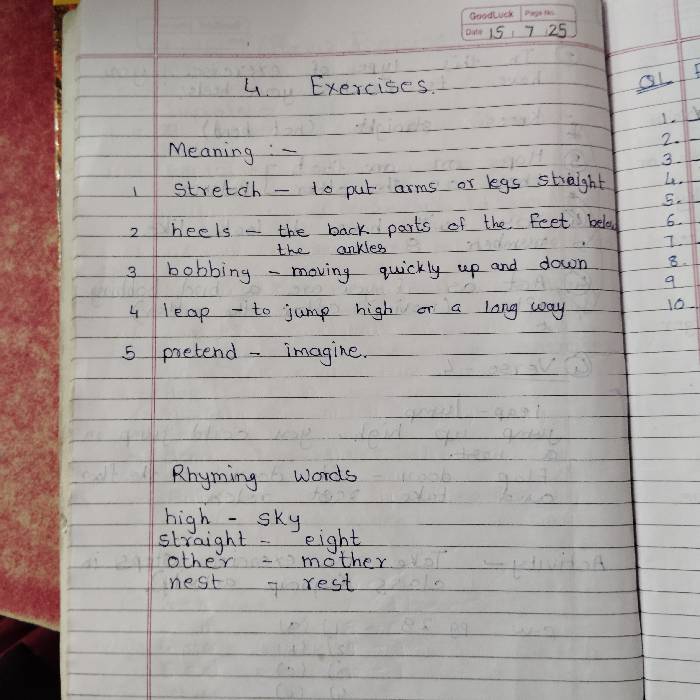 GoodLuck Page No.
Date 15 7 25
4 Exercises.
Meaning :-
1 Stretch - to put arms or legs straight
2 heels - the back parts of the feet below
the ankles
3 bobbing - moving quickly up and down
4 leap - to jump high or a long way
5 pretend - imagine.
Rhyming Words
high - sky
straight - eight
other - mother
nest - rest
Q1.
1.
2.
3.
4.
5.
6.
7.
8.
9
10